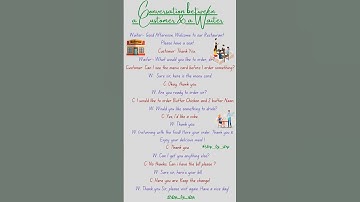 Conversation between
a Customer & a Waiter
Waiter- Good Afternoon, Welcome to our Restaurant!
Please have a seat
Customer: Thank You
Waiter- What would you like to order, sir
Customer: Can I see the menu card before I order something?
W. Sure sir, here is the menu card
C. Okay thank you
W. Are you ready to order sir?
C. I would like to order Butter Chicken and 2 butter Naan
W. Would you like something to drink?
C. Yes, I'd like a coke
W. Thank you
W. (returning with the food) Here your order. Thank you &
Enjoy your delicious meal!
C. Thank you
W. Can I get you anything else?
C. No thanks. Can i have the bill please ?
W. Sure sir, here's your bill
C. Here you are. Keep the change!
W. Thank you Sir, please visit again. Have a nice day!